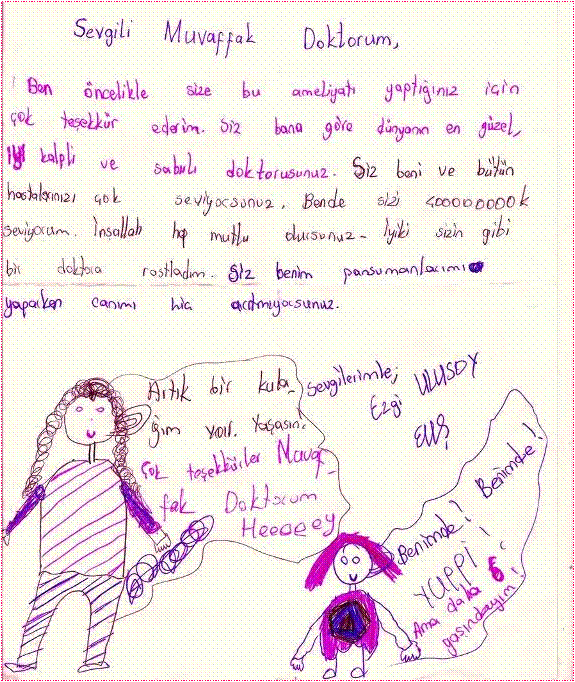 Sevgili Muvaffak Doktorum,
Ben öncelikle size bu ameliyatı yaptığınız için
çok teşekkür ederim. Siz bana göre dünyanın en güzel,
iyi kalpli ve sabırlı doktorusunuz. Siz beni ve bütün
hastalarınızı çok seviyorsunuz. Bende sizi 400000000k
seviyorum. İnşallah hep mutlu olursunuz. İyiki sizin gibi
bir doktora rastladım. Siz benim pansumanlarımı
yaparken canımı hiç acıtmıyorsunuz.
Artık bir kula-
ğım var. Yaşasın!
Çok teşekkürler Muvaf-
fak Doktorum
Heeeeey
Sevgilerimle;
Ezgi ULUSOY
Benimde! Benimde!
YUPPİ!
Ama daha 6
yaşındayım!